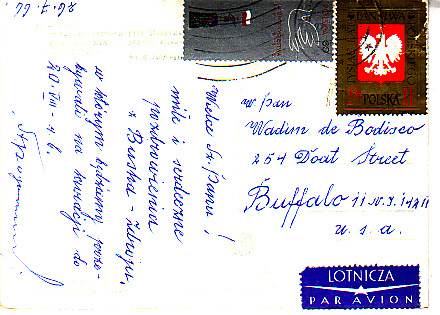 26.7.66
Wielce Sz. Panu!
miłe i serdeczne
pozdrowienia
z Buska-Zdroju,
w którym będziemy prze-
bywali na kuracji do
20.VIII - 4 b.
W Pan
Wadim de Bodisco
254 Doat Street
Buffalo 11 N.Y. 14211
U.S.A.
POLSKA
LOTNICZA
PAR AVION